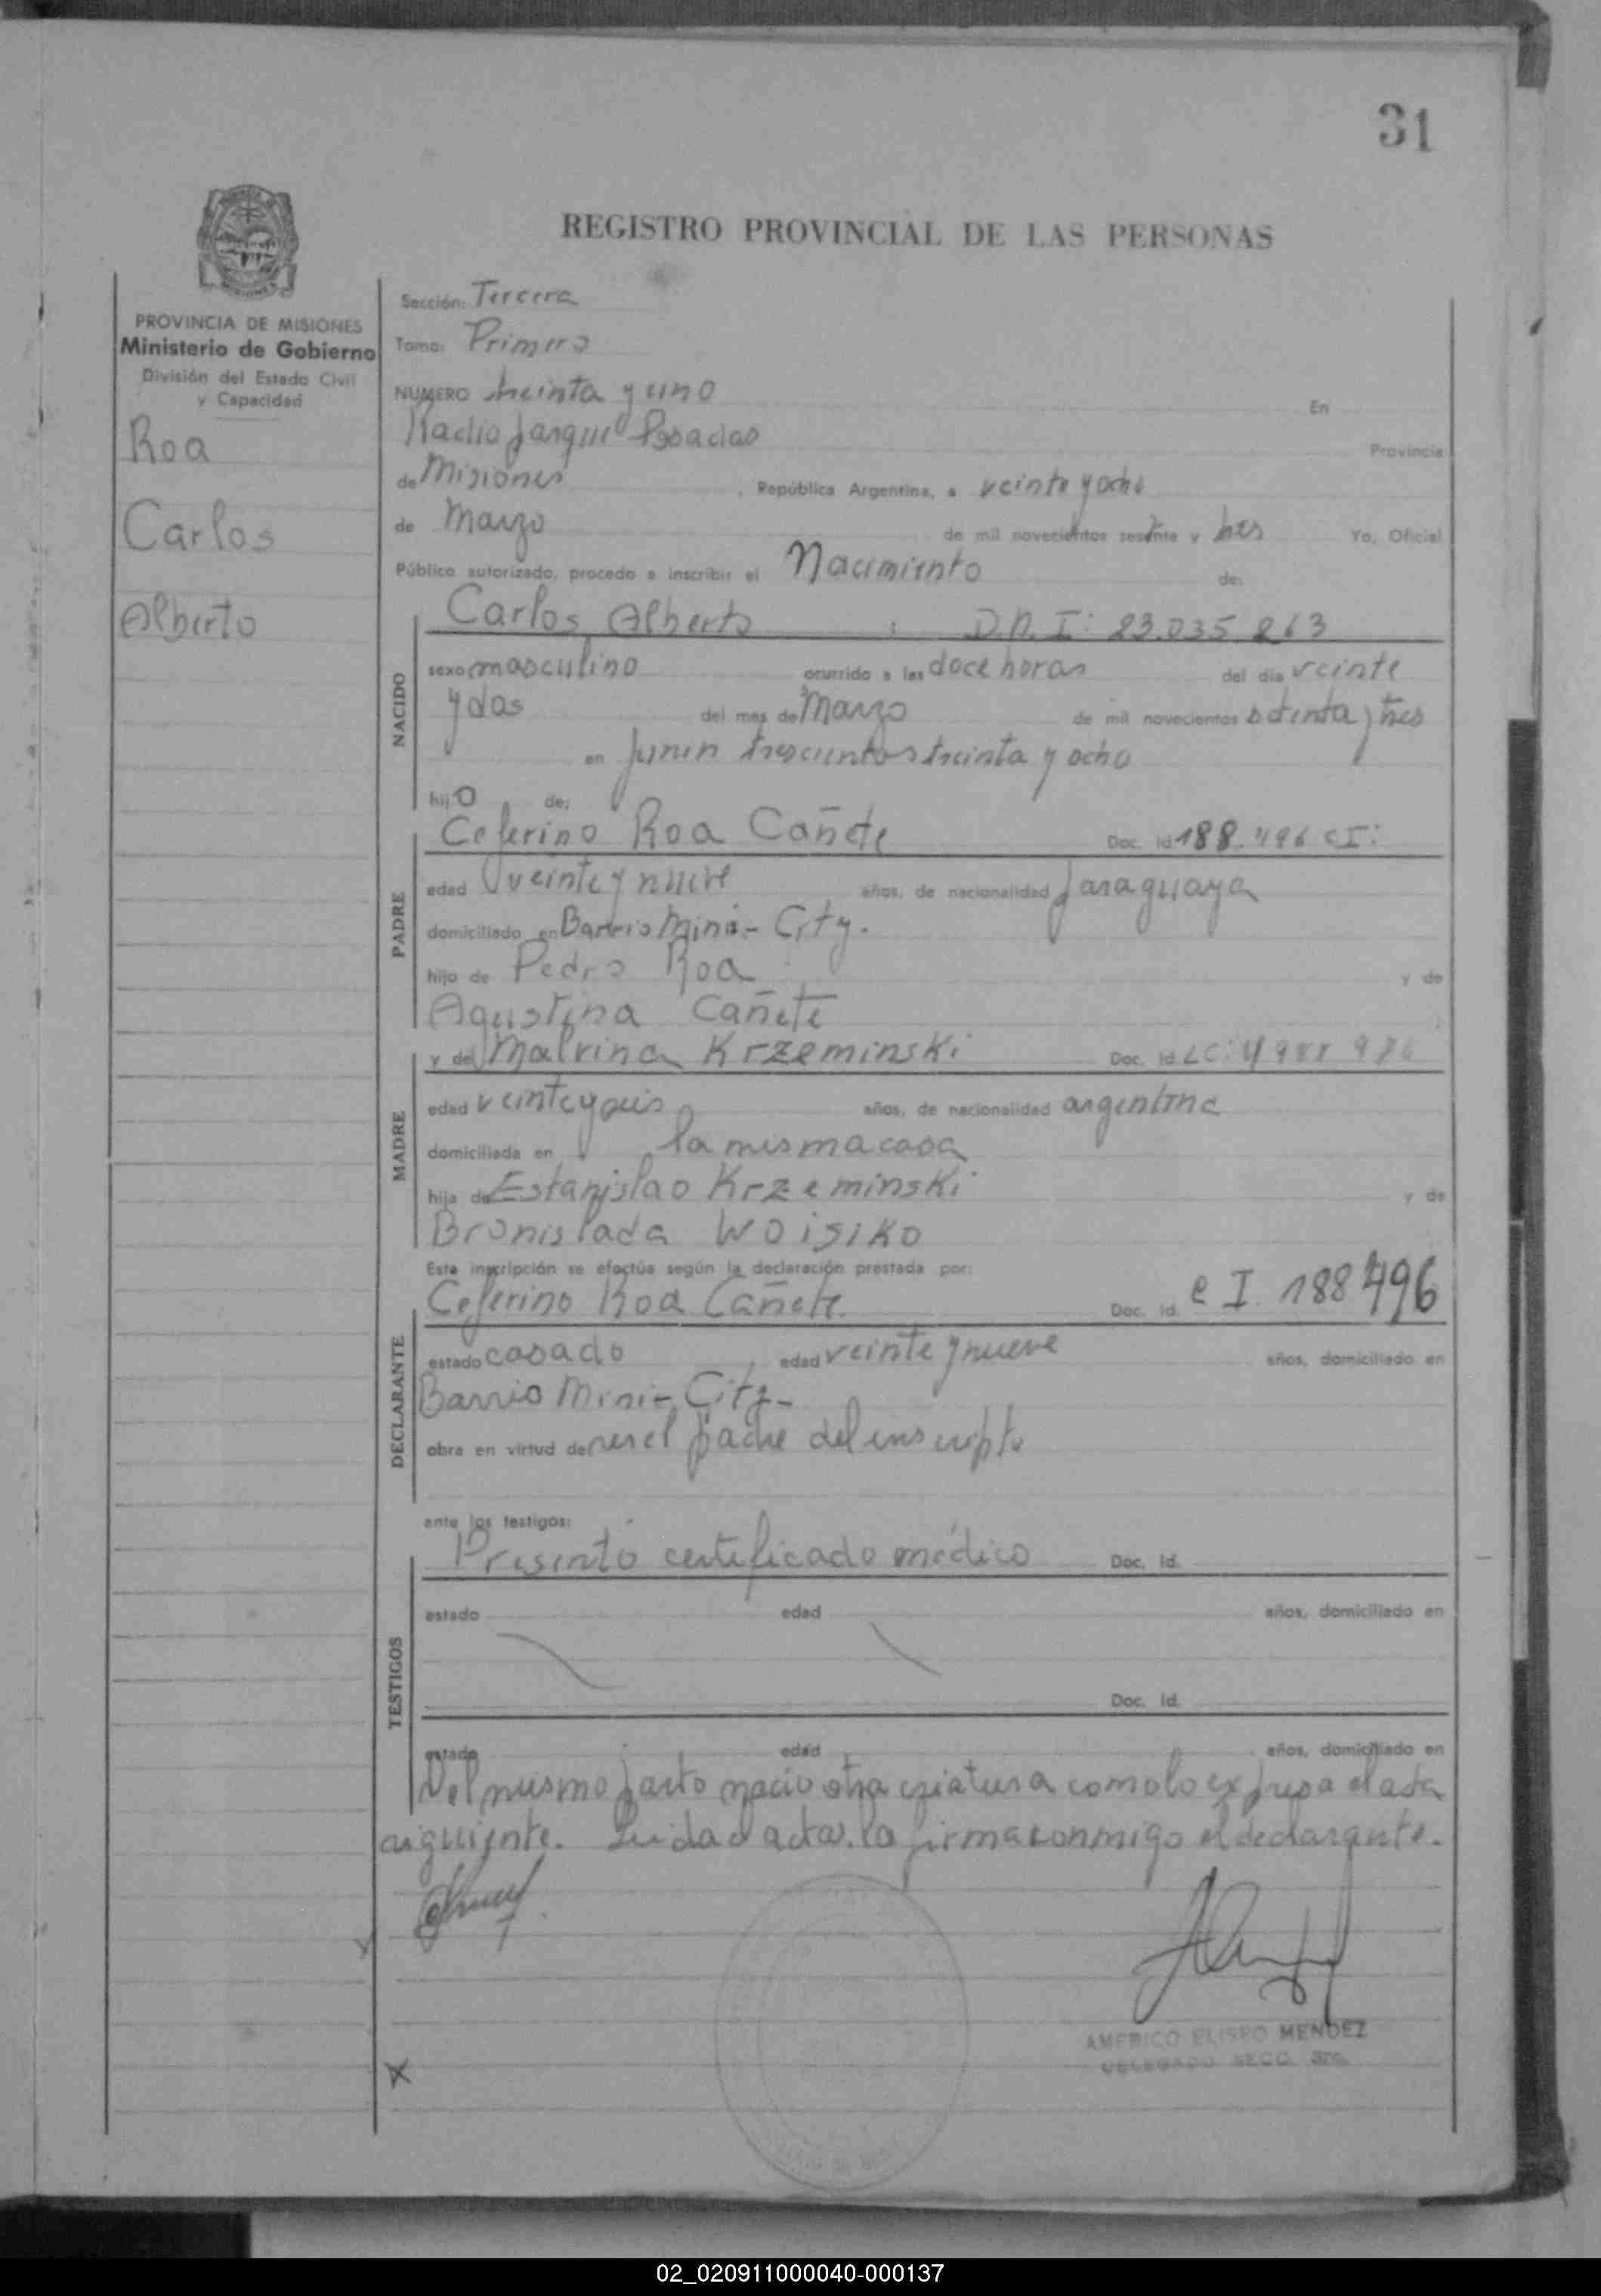 31
REGISTRO PROVINCIAL DE LAS PERSONAS
PROVINCIA DE MISIONES
Ministerio de Gobierno
División del Estado Civil
y Capacidad
Roa
Carlos
Alberto
Sección: Tercera
Tomo: Primero
NUMERO treinta y uno En
Radio Parque Posadas Provincia
de Misiones, República Argentina, a veinte y ocho
de Marzo de mil novecientos sesenta y tres Yo, Oficial
Público autorizado, procedo a inscribir el Nacimiento de:
NACIDO
Carlos Alberto : D.N.I: 23.035 263
sexo masculino ocurrido a las doce horas del día veinte
y dos del mes de Marzo de mil novecientos setenta y tres
en Junin trescientos treinta y ocho
hijo de:
PADRE
Ceferino Roa Cañete Doc. Id. 188.496 CI:
edad veinte y nueve años, de nacionalidad paraguaya
domiciliado en Barrio Mini-City.
hijo de Pedro Roa y de
Agustina Cañete
MADRE
y de Malvina Krzeminski Doc. Id. LC:
edad veinte y seis años, de nacionalidad argentina
domiciliada en la misma casa
hija de Estanislao Krzeminski y de
Bronislada Woisiko
Esta inscripción se efectúa según la declaración prestada por:
DECLARANTE
Ceferino Roa Cañete Doc. Id. C I. 188496
estado casado, edad veinte y nueve años, domiciliado en
Barrio Mini-City-
obra en virtud de ser el padre del inscripto
ante los testigos:
TESTIGOS
Presentó certificado médico Doc. Id.
estado edad años, domiciliado en
Doc. Id.
estado edad años, domiciliado en
Del mismo parto nació otra criatura como lo expresa el acta
siguiente. Leida el acta. la firma conmigo el declarante.
AMERICO ELISEO MENDEZ
DELEGADO SECC. 3ra.
02_020911000040-000137